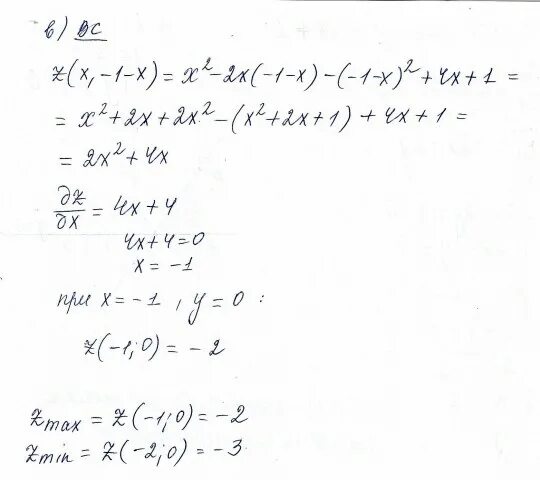 в) BC
z(x, -1-x) = x² - 2x(-1-x) - (-1-x)² + 4x + 1 =
= x² + 2x + 2x² - (x² + 2x + 1) + 4x + 1 =
= 2x² + 4x
∂z/∂x = 4x + 4
4x + 4 = 0
x = -1
при x = -1, y = 0 :
z(-1; 0) = -2
z max = z(-1; 0) = -2
z min = z(-2; 0) = -3